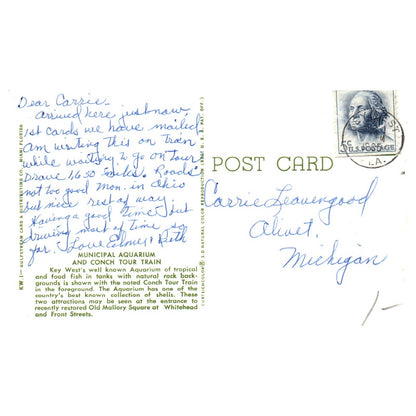 Dear Carrie.
Arrived here just now,
1st cards we have mailed
Am writing this on train
while waiting to go on Tour
Drove 1650 miles. Roads
not too good Mon. in Ohio
but nice rest of way.
Having a good time but
driving most of time so
far. Love Elmer & Ruth
MUNICIPAL AQUARIUM
AND CONCH TOUR TRAIN
Key West's well known Aquarium of tropical
and food fish in tanks with natural rock back-
grounds is shown with the noted Conch Tour Train
in the foreground. The Aquarium has one of the
country's best known collection of shells. These
two attractions may be seen at the entrance to
recently restored Old Mallory Square at Whitehead
and Front Streets.
POST CARD
5c
U.S. POSTAGE
Carrie Leavengood
Olivet,
Michigan
1-